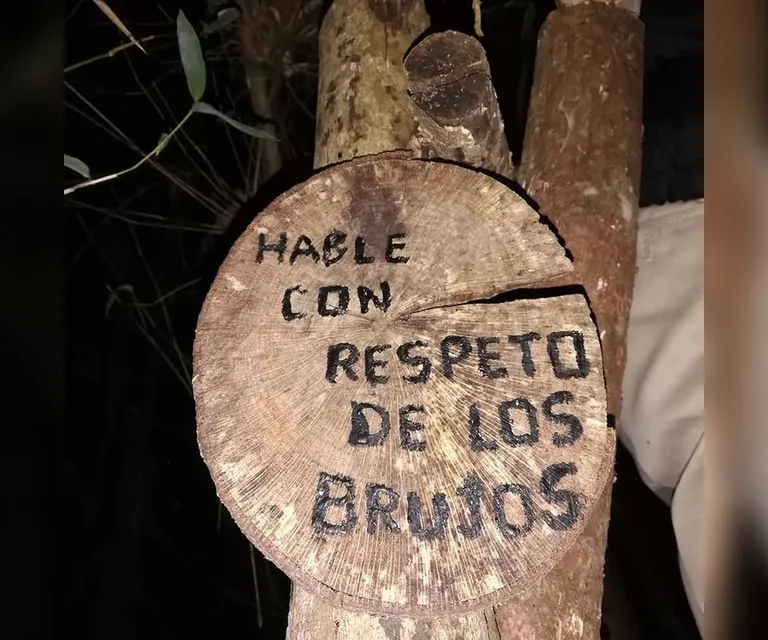 HABLE
CON
RESPETO
DE LOS
BRUJOS